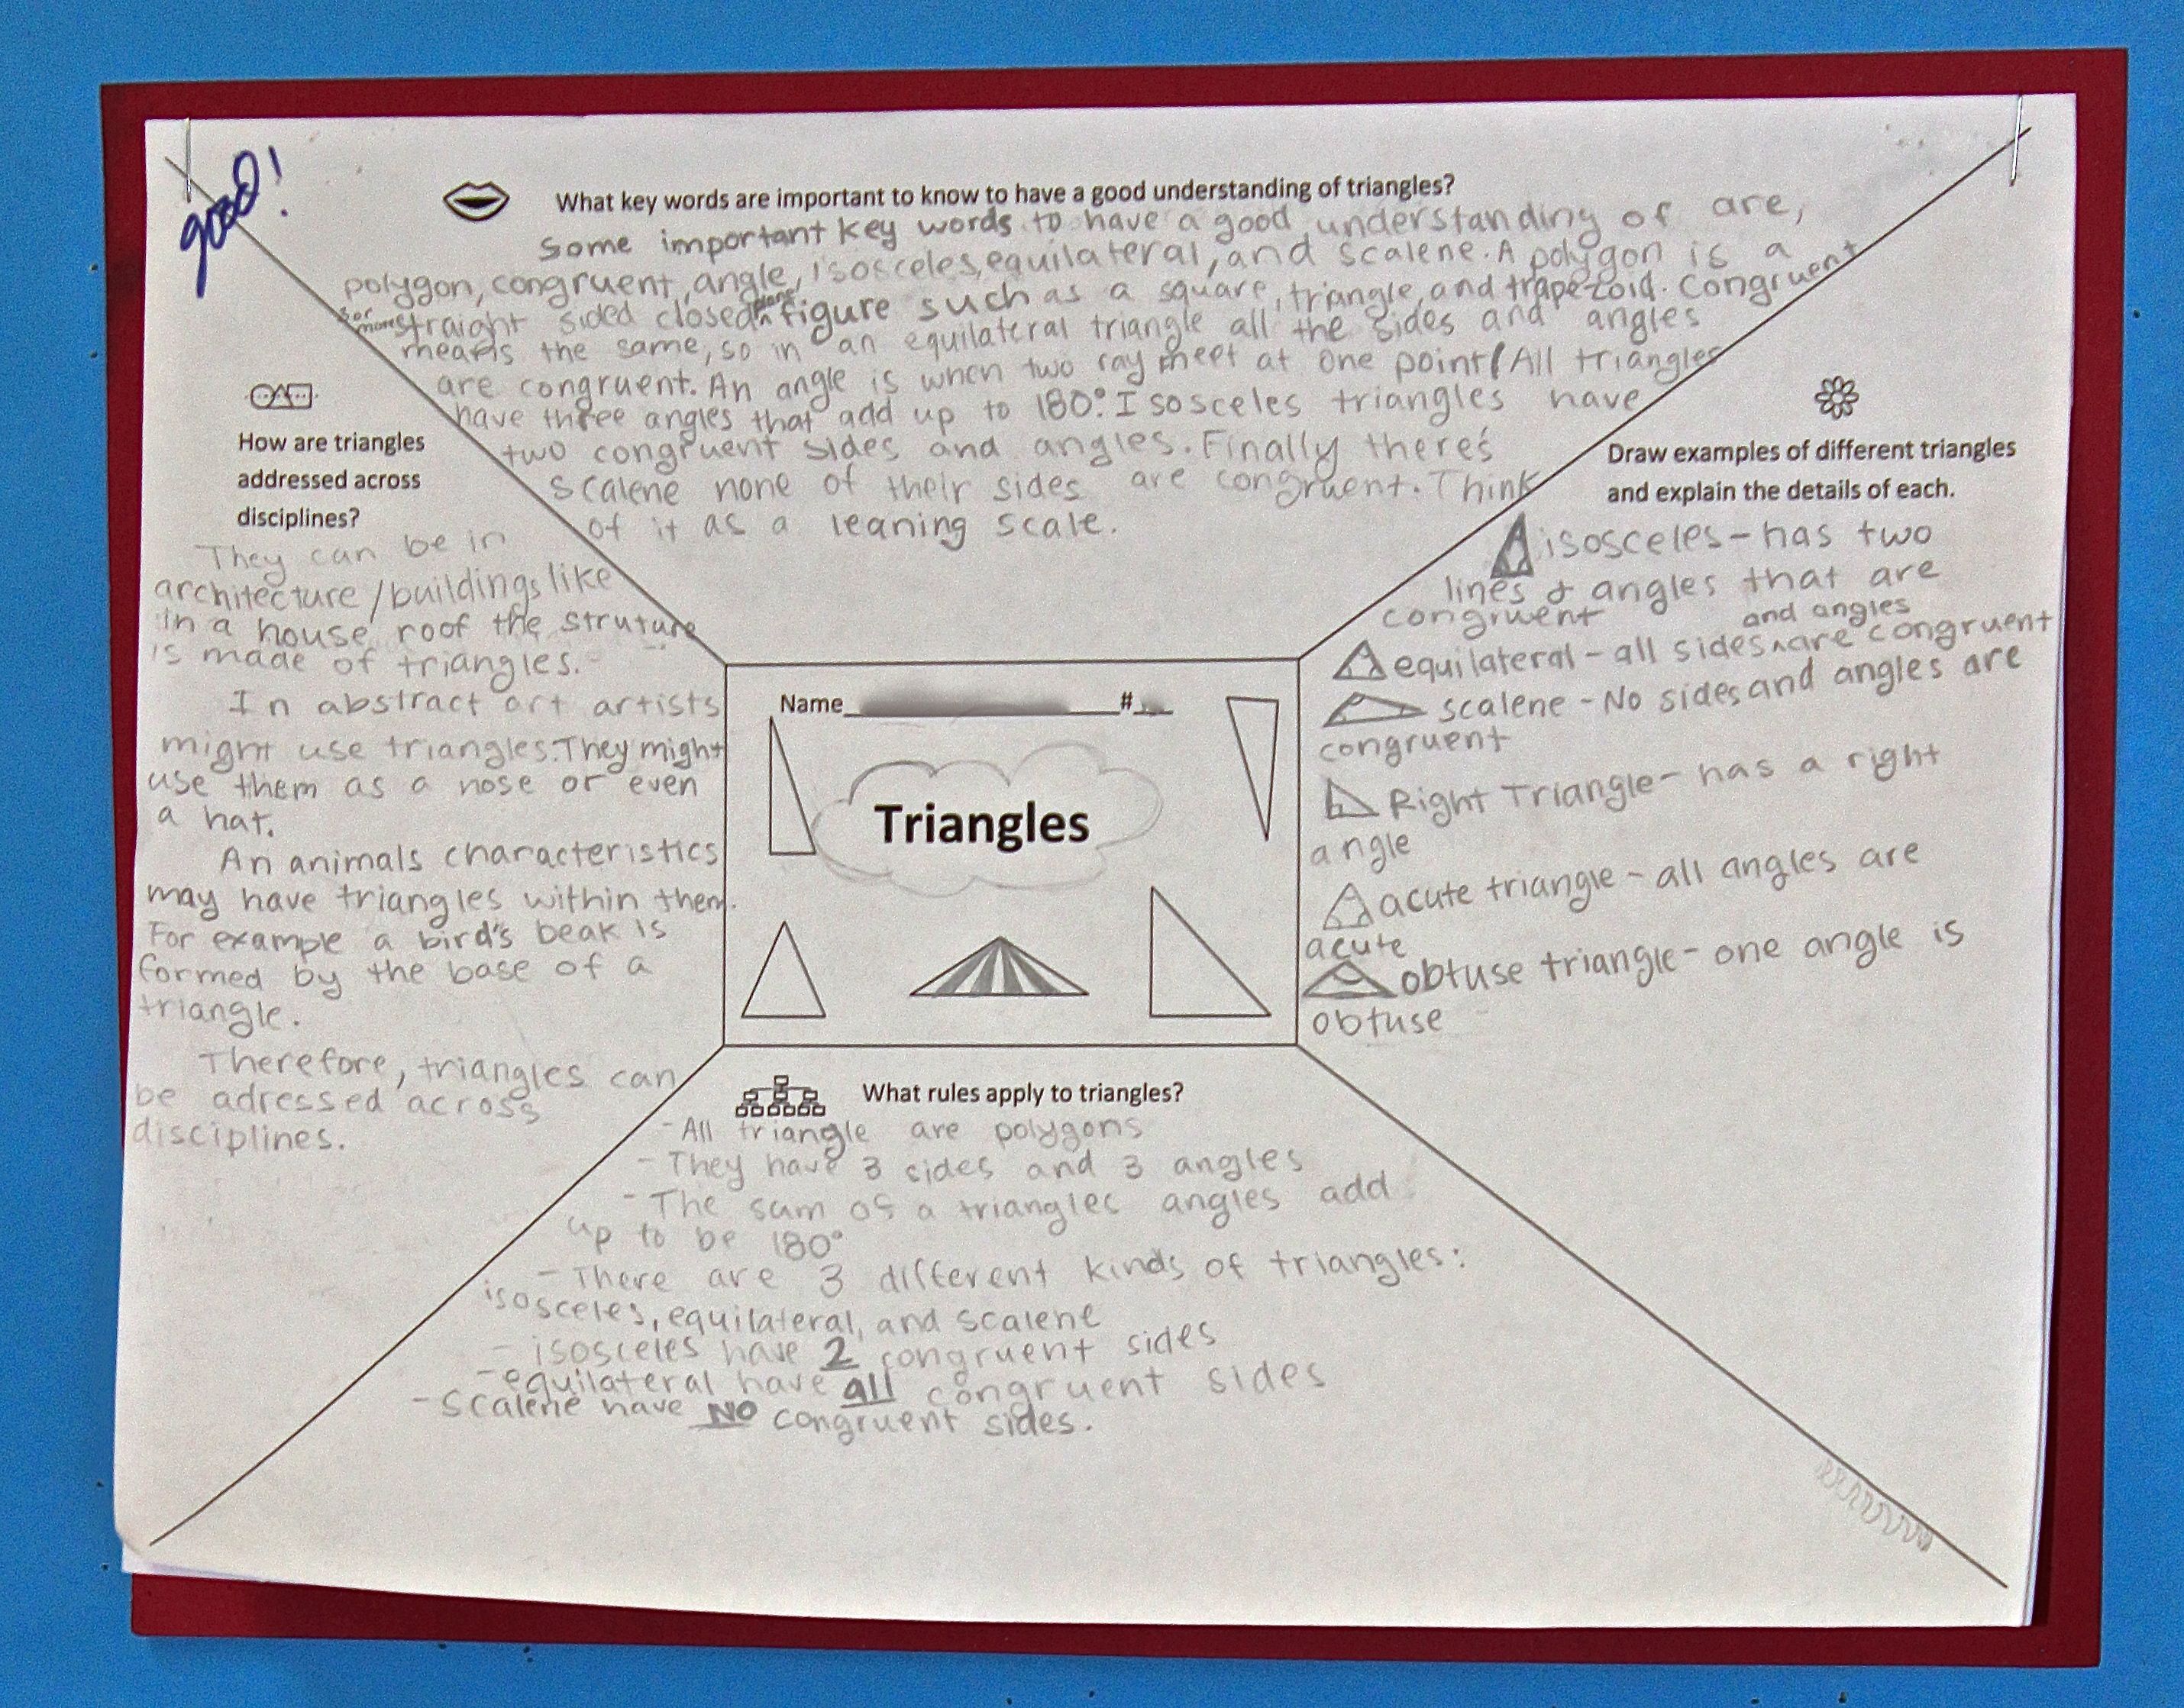 good!
What key words are important to know to have a good understanding of triangles?
Some important key words to have a good understanding of are,
polygon, congruent, angle, isosceles, equilateral, and scalene. A polygon is a
3 or more straight sided closed plane figure such as a square, triangle, and trapezoid. Congruent
means the same, so in an equilateral triangle all the sides and angles
are congruent. An angle is when two ray meet at one point/All triangles
have three angles that add up to 180°. Isosceles triangles have
two congruent sides and angles. Finally there's
scalene none of their sides are congruent. Think
of it as a leaning scale.
How are triangles
addressed across
disciplines?
They can be in
architecture/buildings like
in a house roof the struture
is made of triangles.
In abstract art artists
might use triangles. They might
use them as a nose or even
a hat.
An animals characteristics
may have triangles within them.
For example a bird's beak is
formed by the base of a
triangle.
Therefore, triangles can
be adressed across
disciplines.
Name #
Triangles
Draw examples of different triangles
and explain the details of each.
isosceles - has two
lines & angles that are
congruent
equilateral - all sides and angles are congruent
scalene - No sides and angles are
congruent
Right Triangle - has a right
angle
acute triangle - all angles are
acute
obtuse triangle - one angle is
obtuse
What rules apply to triangles?
- All triangle are polygons
- They have 3 sides and 3 angles
- The sum of a triangles angles add
up to be 180°
- There are 3 different kinds of triangles:
isosceles, equilateral, and scalene
- isosceles have 2 congruent sides
- equilateral have all congruent sides
- Scalene have NO congruent sides.